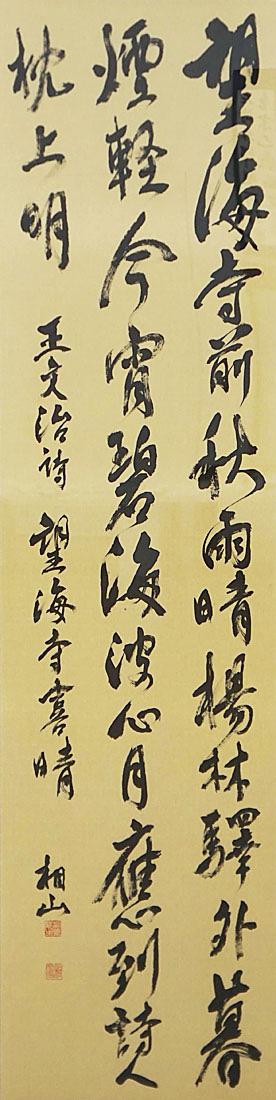 望海寺前秋雨晴楊林驛外暮
煙軽今宵碧海波心月應到詩人
枕上明
王文治詩 望海寺喜晴 相山